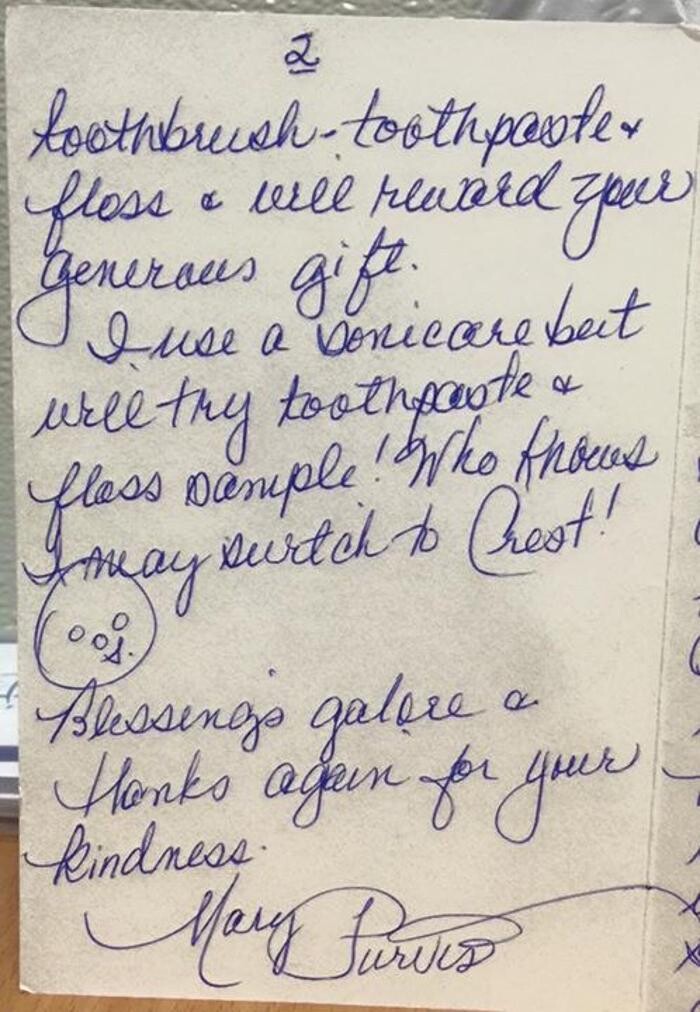 2
toothbrush-toothpaste &
floss & will reward your
generous gift.
I use a sonicare but
will try toothpaste &
floss sample! Who knows
I may switch to Crest!
Blessings galore &
thanks again for your
kindness.
Mary Purvis